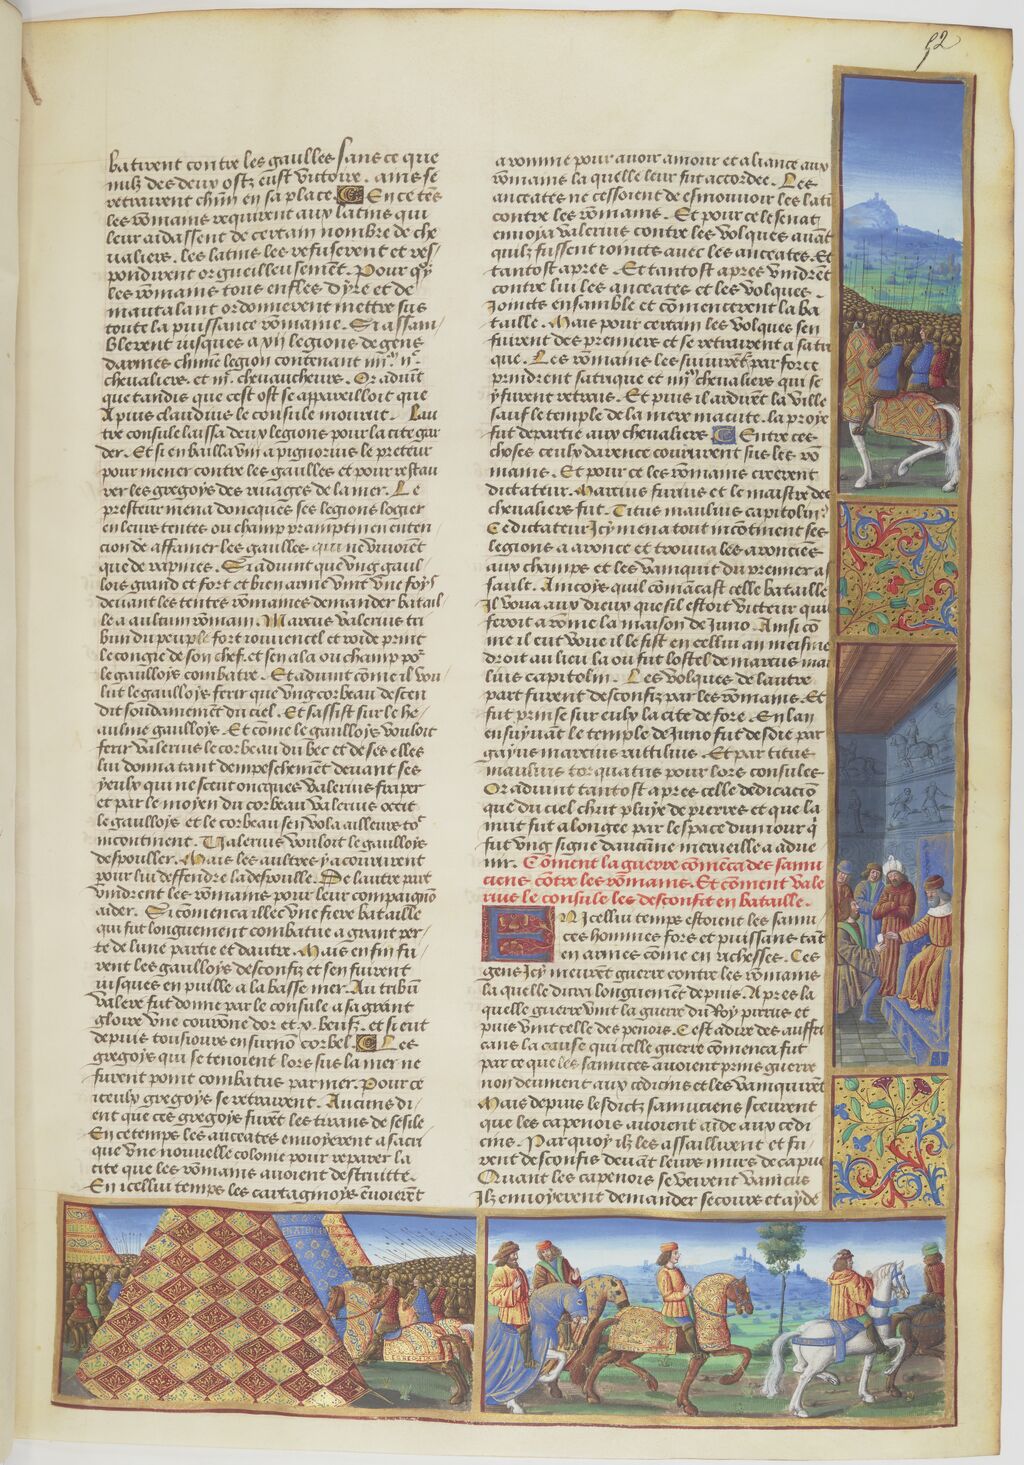 52
batirent contre les gaulles sans ce que
nulz des deux ostz eust victoire . ains se
retrairent chũn en sa place . En ce tẽs
les rõmains requirent aux latins qui
leur aidassent de certain nombre de che
ualiers . les latins les refuserent et res /
pondirent orgueilleusement . Pour q̃y
les rõmains tous enfles dyre et de
mautalant ordonnerent mettre sus
toute la puissance rõmaine . Si assam /
blerent iusques a xij legions de gens
darmes chũne legion contenant iiijͫ. ijͨ.
cheualiers et iijͨ. cheuaucheurs . Or aduint
que tandis que cest ost se appareilloit que
Apius claudius le consule mourut . Lau
tre consule laissa deux legions pour la cite gar
der . Et si en bailla viij a pignorius le preteur
pour mener contre les gaulles et pour restau
rer les gregoys des riuages de la mer . Le
presteur mena doncques ses legions logier
en leurs tentes ou champ pramptin en enten
cion de affamer les gaulles qui ne viuoient
que de rapines . Si aduint que vng gaul /
lois grand et fort et bien arme vint vne foys
deuant les tentes rõmaines demander batail
le a aultun rõmain . Marcus valerius tri
bun du peuple fort iouuencel et roide print
le congie de son chef et sen ala ou champ po͛
le gaulloys combatre . Et aduint cõme il vou /
lut le gaulloys ferir que vng corbeau descen
dit soudainement du ciel . Et sassist sur le he /
aulme gaulloys . Et cõme le gaulloys vouloit
ferir valerius le corbeau du bec et de ses elles
lui donna tant dempeschemẽt deuant ses
yeulx qui ne sceut oncques valerius fraper
et par le moyen du corbeau valerius occit
le gaulloys et le corbeau sen vola ailleurs to͛
incontinent . Valerius vouloit le gaulloys
despouller . Mais les aultres y acoururent
pour lui deffendre la despoulle . De lautre part
vindrent les rõmains pour leur compaignõ
aider . Si cõmenca illec vne fiere bataille
qui fut longuement combatue a grant per /
te de lune partie et dautre . Mais en fin fu /
rent les gaulloys desconfiz et sen fuirent
iusques en puille a la basse mer . Au tribũ
valere fut donne par le consule a sa grant
gloire vne couronne dor et x. beufz . et si eut
depuis tousiours en surnõ corbel . Les
gregoys qui se tenoient lors sus la mer ne
furent point combatus par mer . Pour ce
iceulx gregoys se retrairent . Aucuns di /
ent que ces gregoys furẽt les tirans de sesile
En ce temps les anceates enuoyerent a satri
que vne nouuelle colonie pour reparer la
cite que les rõmains auoient destruitte .
En icellui temps les cartaginoys ẽuoierẽt
a romme pour auoir amour et aliance aux
rõmains la quelle leur fut accordee . Les
anceates ne cessoient de esmouuoir les lati
contre les rõmains . Et pour ce le senat
enuoya valerius contre les volques auãt
quilz fussent ioincts auec les anceates . Et
tantost apres . Et tantost apres vindrẽt
contre lui les anceates et les volques .
Joincts ensamble et cõmencerent la ba
taille . Mais pour certain les volques sen
fuirent des premiers et se retrairent a satri
que . Les rõmains les suiuirẽt par force
prindrent satrique et iiijͫ cheualiers qui se
y furent retrais . Et puis il ardirẽt la ville
sauf le temple de la mere matute . la proye
fut departie aux cheualiers . Entre ces
choses ceulx darence coururent sus les rõ
mains . Et pour ce les rõmains creerent
dictateur . Marcius furius et le maistre des
cheualiers fut . Titus manlius capitolin .
Ce dictateur Icy mena tout incontinent ses
legions a aronce et trouua les aronciẽs
aux champs et les vainquit du premier as
sault . Aincoys quil cõmencast celle bataille
Il voua aux dieux que sil estoit victeur qui
feroit a rõme la maison de Juno . Ainsi cõ
me il eut voue il le fist en cellui an meisme
droit au lieu la ou fut lostel de marcus man
luis capitolin . Les volques de lautre
part furent desconfiz par les rõmains . Et
fut prinse sur eulx la cite de sore . En lan
ensuyuant le temple de Juno fut desdie par
gayus marcius ruttilius . Et par titus
manlius torquatus pour lors consules .
Or aduint tantost apres celle dedicaciõ
que du ciel cheut pluye de pierres et que la
nuit fut alongee par lespace dun iour q̃
fut vng signe daucune merueille a adue
nir . Cõment la guerre cõmẽca des samni
ciens cõtre les rõmains . Et cõment vale
rius le consule les desconfit en bataille .
EN icellui temps estoient les samni
ces hommes fors et puissans tãt
en armes cõme en richesses . Ces
gens Icy meurẽt guerre contre les rõmains
la quelle dura longuemẽt depuis . Apres la
quelle guerre vint la guerre du Roy pirrus et
puis vint celle des penois . Cest adire des auffri
cans la cause qui celle guerre cõmenca fut
par ce que les samnices auoient prins guerre
non deuement aux cedicins et les vainquirẽt
Mais depuis lesdictz samniciens sceurent
que les capenois auoient aide aux cedi
cins . Parquoy ilz les assaillirent et fu /
rent desconfis deuãt leurs murs de capue
Quant les capenois se veirent vaincus
Ilz enuoyerent demander secours et ayde